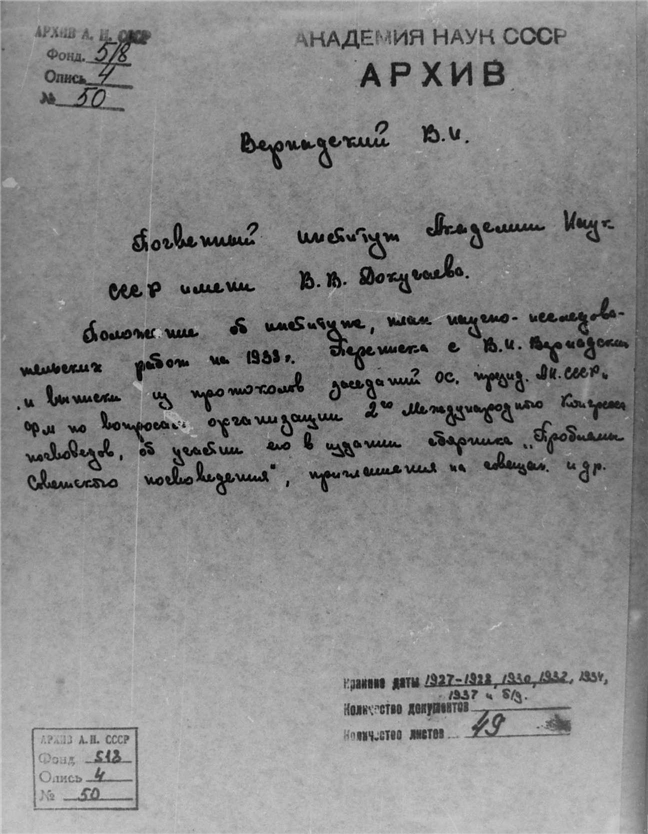 АРХИВ А. Н. СССР
Фонд. 518
Опись 4
№ 50
АКАДЕМИЯ НАУК СССР
АРХИВ
Вернадский В.И.
Почвенный институт Академии Наук
СССР имени В.В. Докучаева.
Положение об институте, план научно-исследова-
тельских работ на 1938 г. Переписка с В.И. Вернадским
и выписки из протоколов заседаний ОС, презид. АН СССР,
по вопросам организации 2го Международного Конгресса
почвоведов, об участии его в издании сборника „Проблемы
Советского почвоведения", приглашения на совещан. и др.
Крайние даты 1927-1928, 1930, 1932, 1934,
1937 и б/д.
Количество документов
Количество листов 49
АРХИВ А.Н. СССР
Фонд 518
Опись 4
№ 50